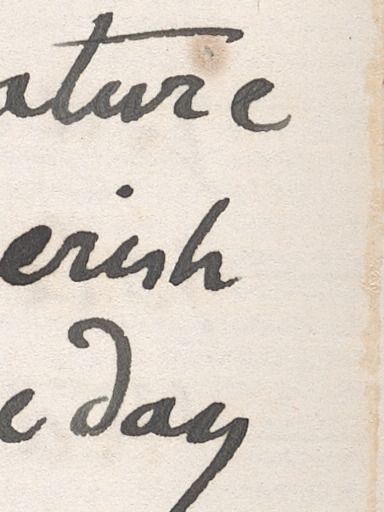 ature
erish
e day